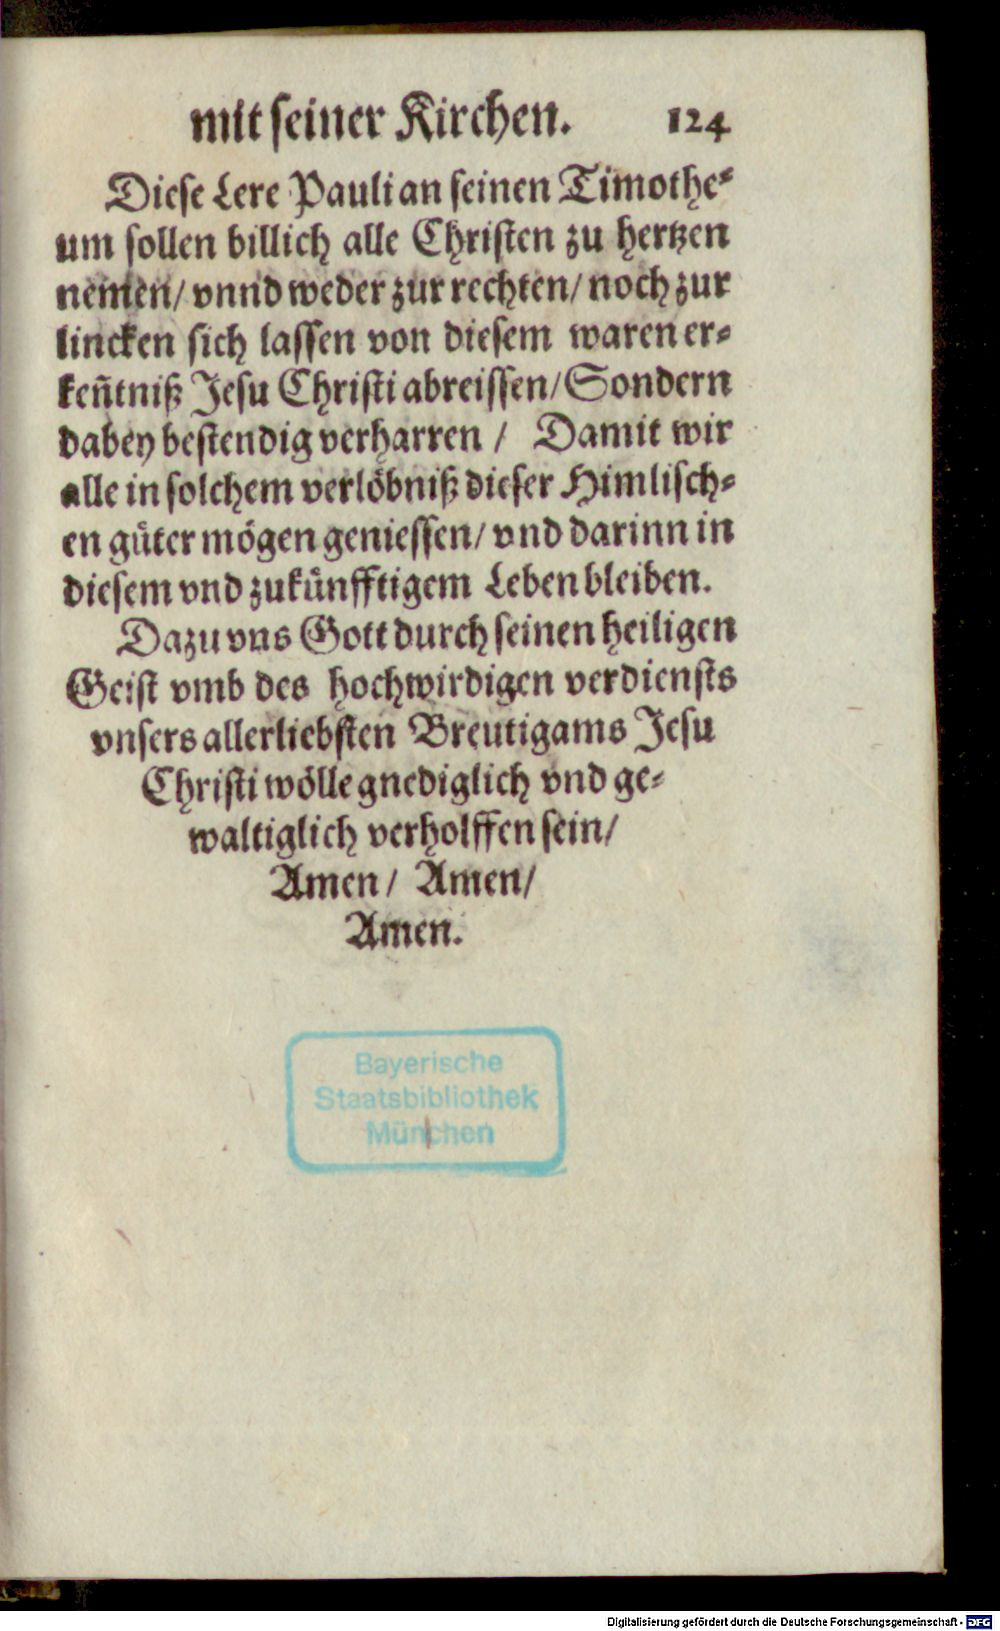 mit seiner Kirchen. 124
Diese Lere Pauli an seinen Timothe⸗
um sollen billich alle Christen zu hertzen
nemen/ vnnd weder zur rechten/ noch zur
lincken sich lassen von diesem waren er⸗
keñtniß Jesu Christi abreissen/ Sondern
dabey bestendig verharren / Damit wir
alle in solchem verlöbniß dieser Himlisch⸗
en güter mögen geniessen/ vnd darinn in
diesem vnd zukünfftigem Leben bleiben.
Dazu vns Gott durch seinen heiligen
Geist vmb des hochwirdigen verdiensts
vnsers allerliebsten Breutigams Jesu
Christi wölle gnediglich vnd ge⸗
waltiglich verholffen sein/
Amen/ Amen/
Amen.
Bayerische
Staatsbibliothek
München
Digitalisierung gefördert durch die Deutsche Forschungsgemeinschaft - DFG